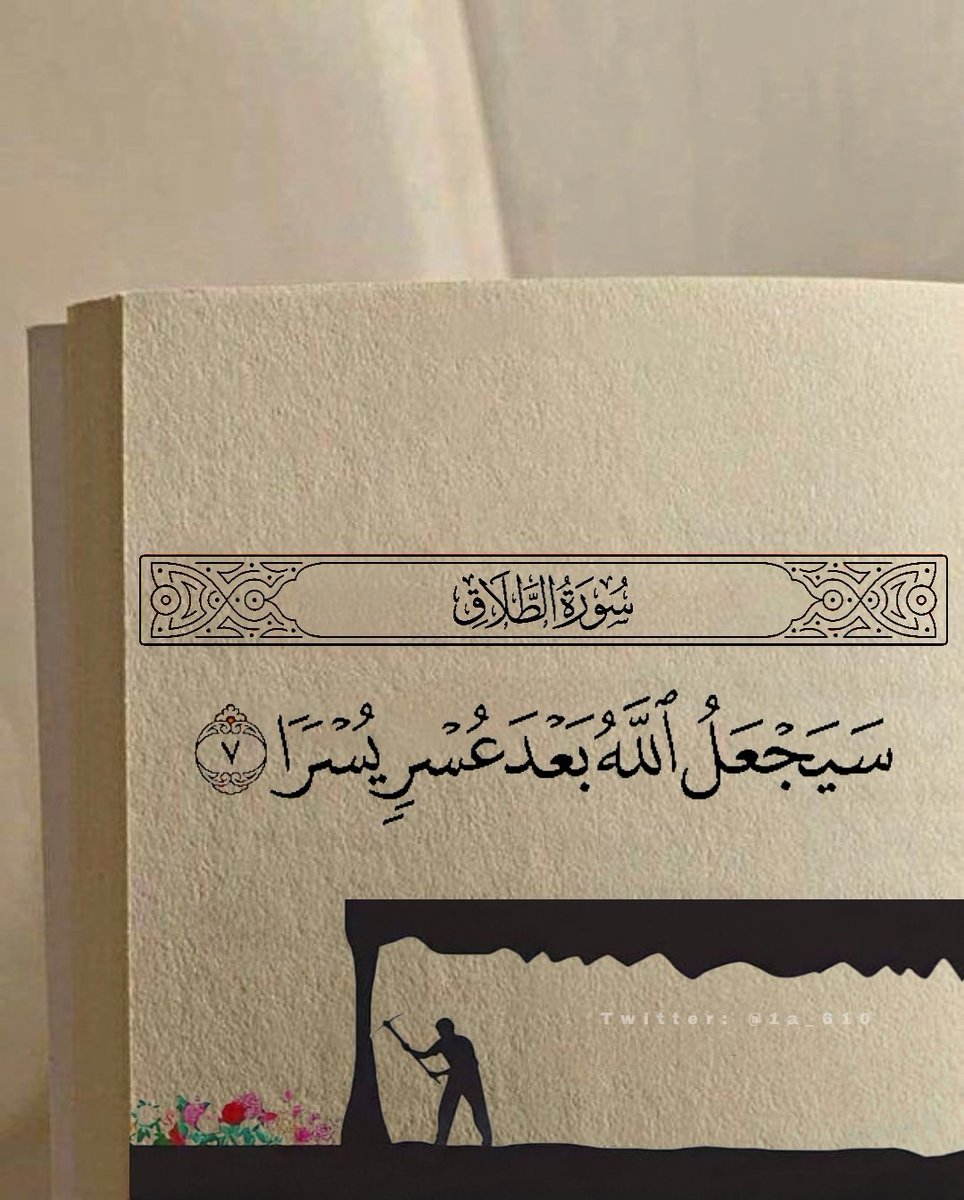 سُورَةُ الطَّلَاقِ
سَيَجْعَلُ ٱللَّهُ بَعْدَ عُسْرٍ يُسْرًا ٧
Twitter: @1a_610